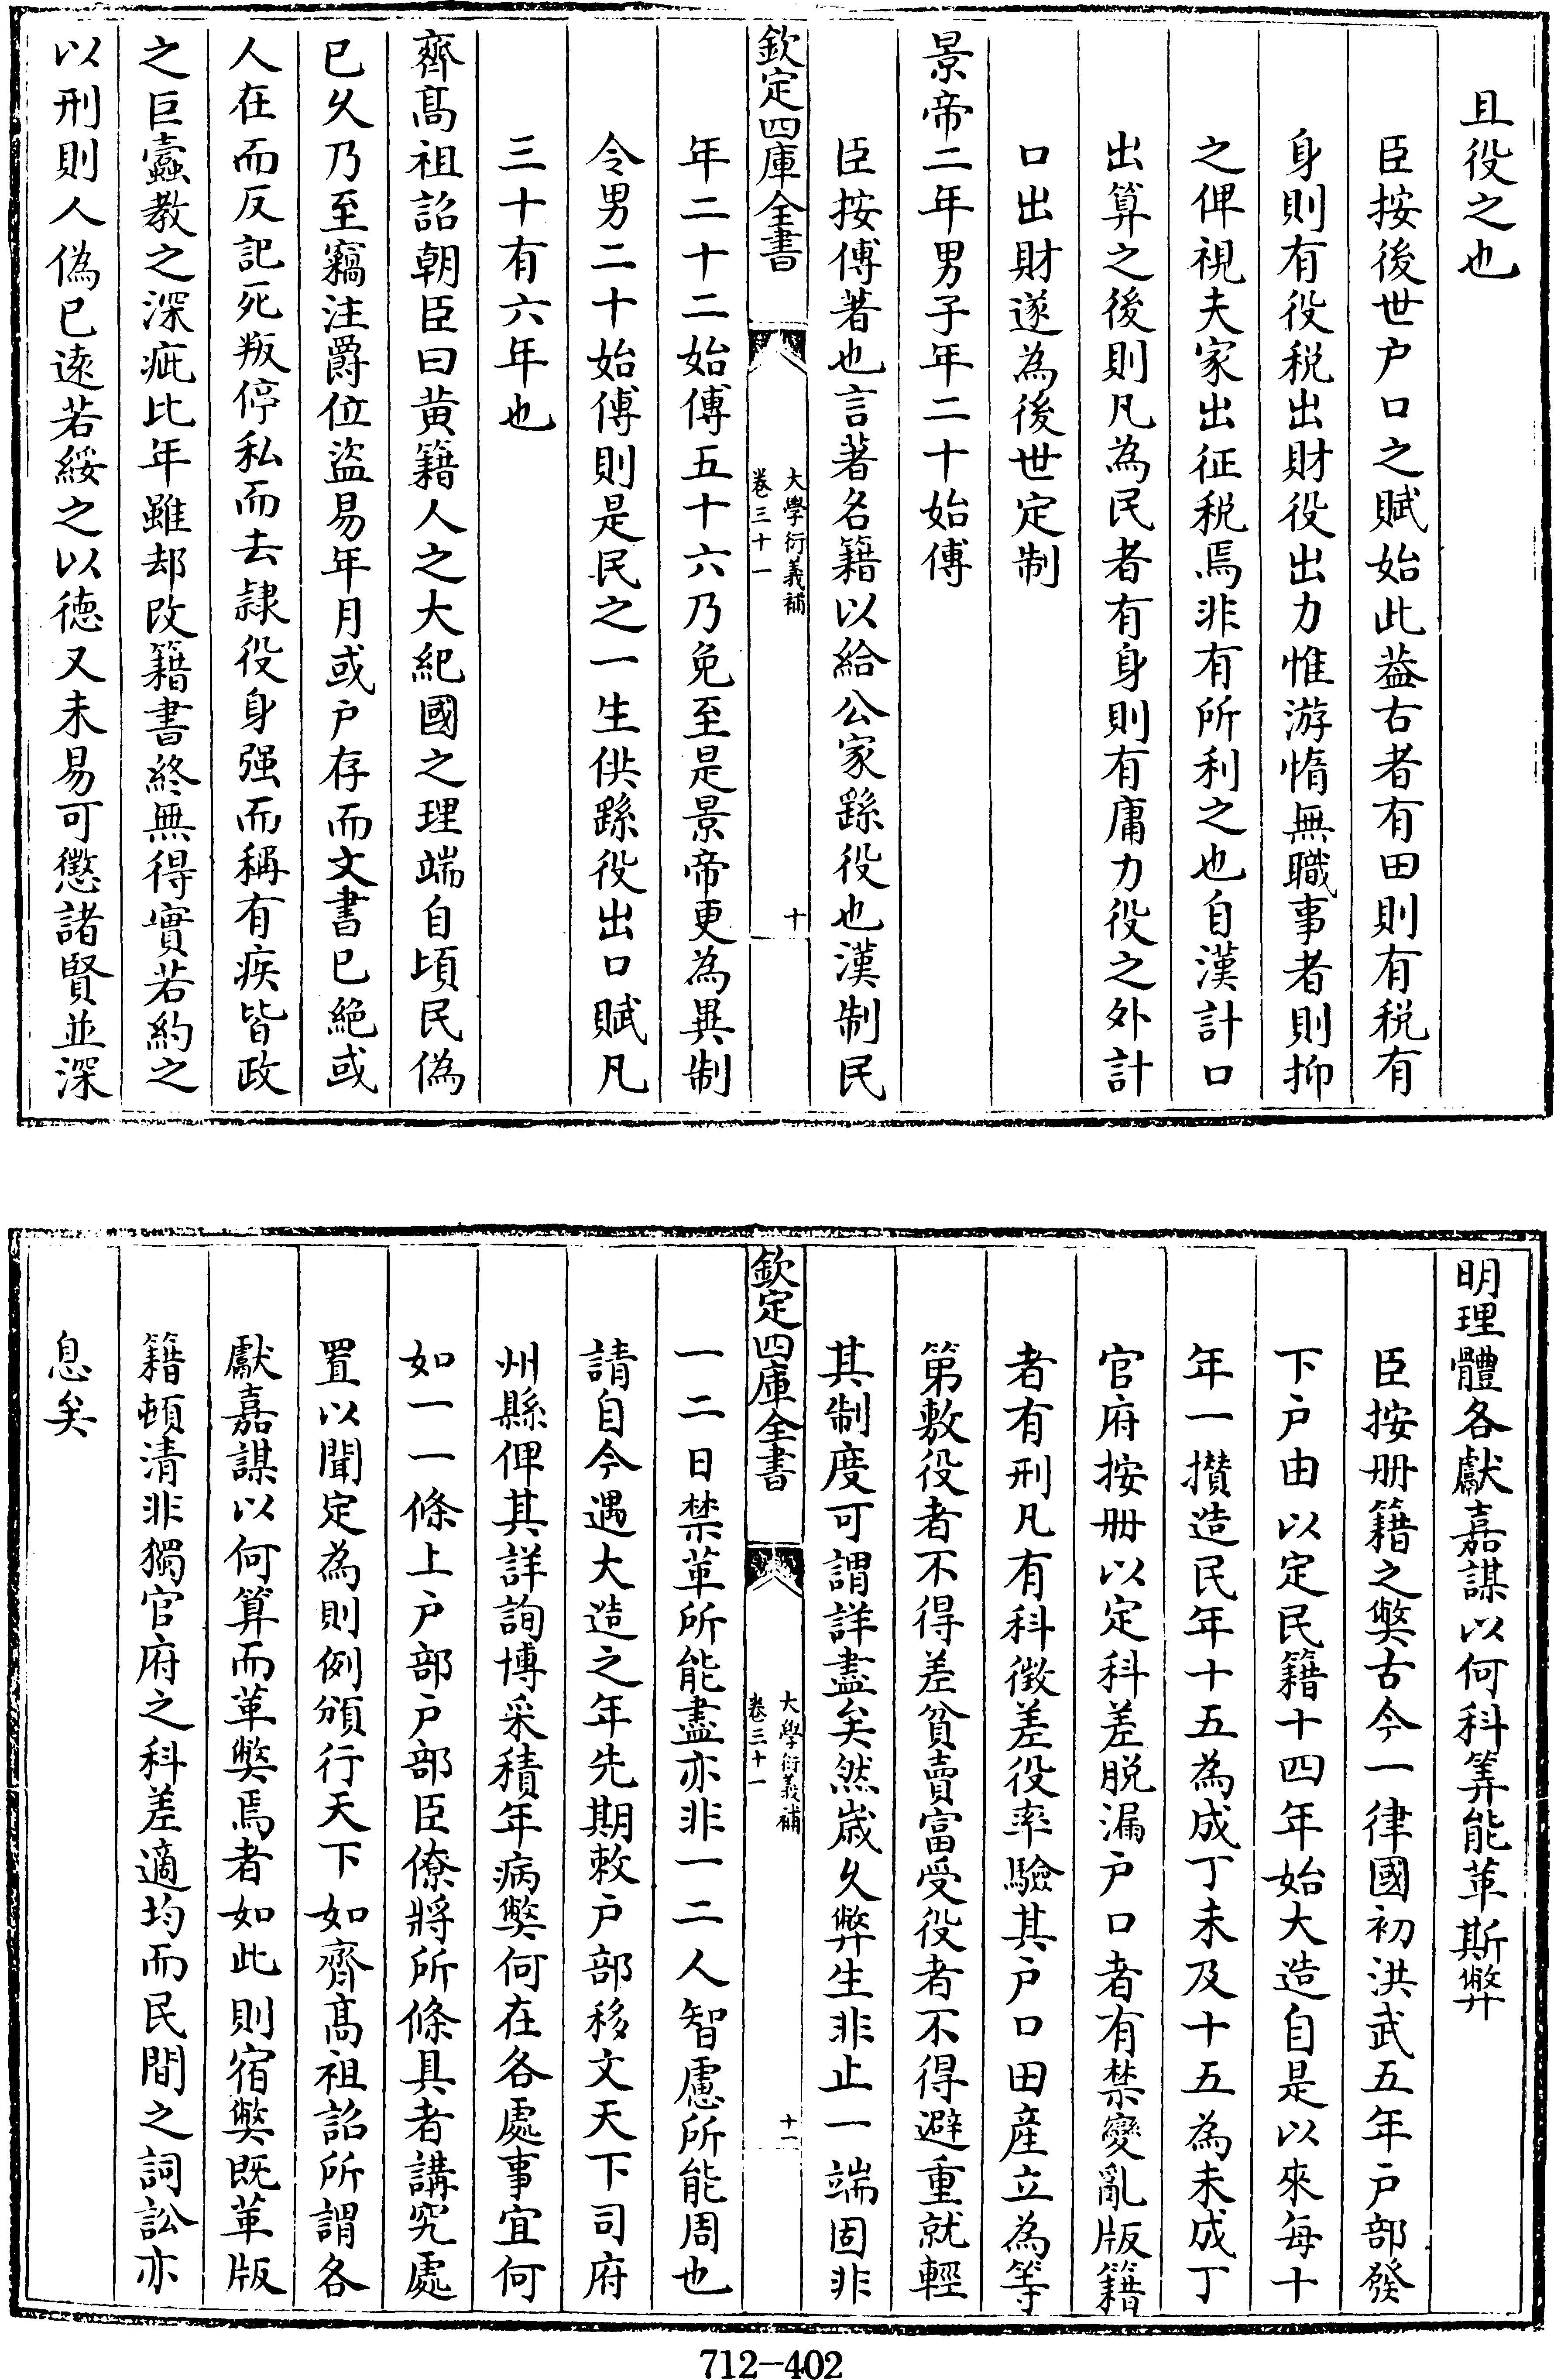 且役之也
臣按後世户口之賦始此葢古者有田則有税有
身則有役税出財役出力惟游惰無職事者則抑
之俾視夫家出征税焉非有所利之也自漢計口
出算之後則凡為民者有身則有庸力役之外計
口出財遂為後世定制
景帝二年男子年二十始傅
臣按傅著也言著名籍以給公家繇役也漢制民
欽定四庫全書
大學衍義補
卷三十一
十
年二十二始傅五十六乃免至是景帝更為異制
令男二十始傅則是民之一生供繇役出口賦凡
三十有六年也
齊髙祖詔朝臣曰黄籍人之大紀國之理端自頃民偽
已久乃至竊注爵位盜易年月或户存而文書已絶或
人在而反記死叛停私而去隷役身强而稱有疾皆政
之巨蠧教之深疵比年雖却改籍書終無得實若約之
以刑則人偽已遠若綏之以徳又未易可懲諸賢並深
明理體各獻嘉謀以何科筭能革斯弊
臣按册籍之弊古今一律國初洪武五年户部發
下户由以定民籍十四年始大造自是以來每十
年一攅造民年十五為成丁未及十五為未成丁
官府按册以定科差脱漏户口者有禁變亂版籍
者有刑凡有科徴差役率驗其户口田産立為等
第敷役者不得差貧賣富受役者不得避重就輕
其制度可謂詳盡矣然歳久弊生非止一端固非
欽定四庫全書
大學衍義補
卷三十一
十一
一二日禁革所能盡亦非一二人智慮所能周也
請自今遇大造之年先期敕户部移文天下司府
州縣俾其詳詢博采積年病弊何在各處事宜何
如一一條上户部户部臣僚將所條具者講究處
置以聞定為則例頒行天下如齊髙祖詔所謂各
獻嘉謀以何算而革弊焉者如此則宿弊既革版
籍頓清非獨官府之科差適均而民間之詞訟亦
息矣
712-402